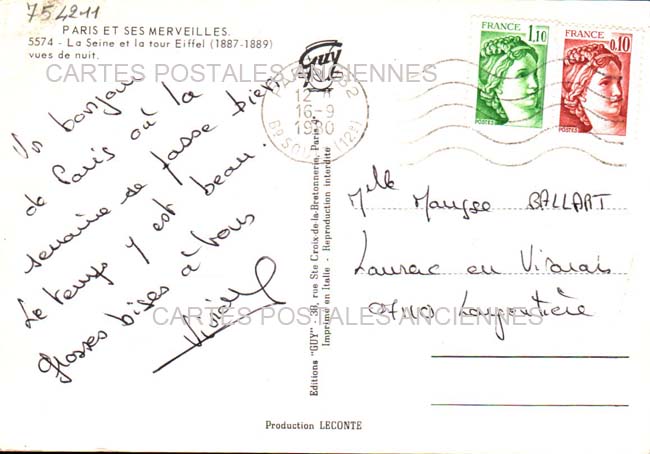 754211
PARIS ET SES MERVEILLES.
5574 - La Seine et la tour Eiffel (1887-1889)
vues de nuit.
Guy
CARTES POSTALES ANCIENNES
FRANCE
1,10
POSTES
FRANCE
0,10
POSTES
PARIS
12 H
16-9
1980
(12e)
Un bonjour
de Paris où la
semaine se passe bien.
Le temps y est beau.
Grosses bises à tous
Editions "GUY" - 39, rue Ste Croix-de-la-Bretonnerie, Paris-4e
Imprimé en Italie - Reproduction interdite
Mlle BALLART
Laurac en Vivarais
07110 Largentière
CARTES POSTALES ANCIENNES
Production LECONTE